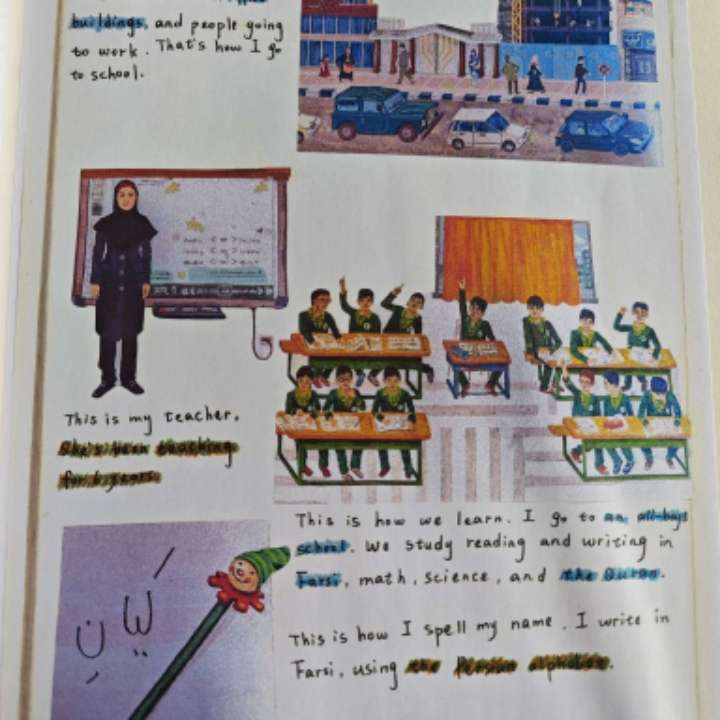 buildings, and people going
to work. That's how I go
to school.
This is my teacher.
She's been teaching
for 6 years.
This is how we learn. I go to an all-boys
school. We study reading and writing in
Farsi, math, science, and the Quran.
کیان
This is how I spell my name. I write in
Farsi, using the Persian alphabet.